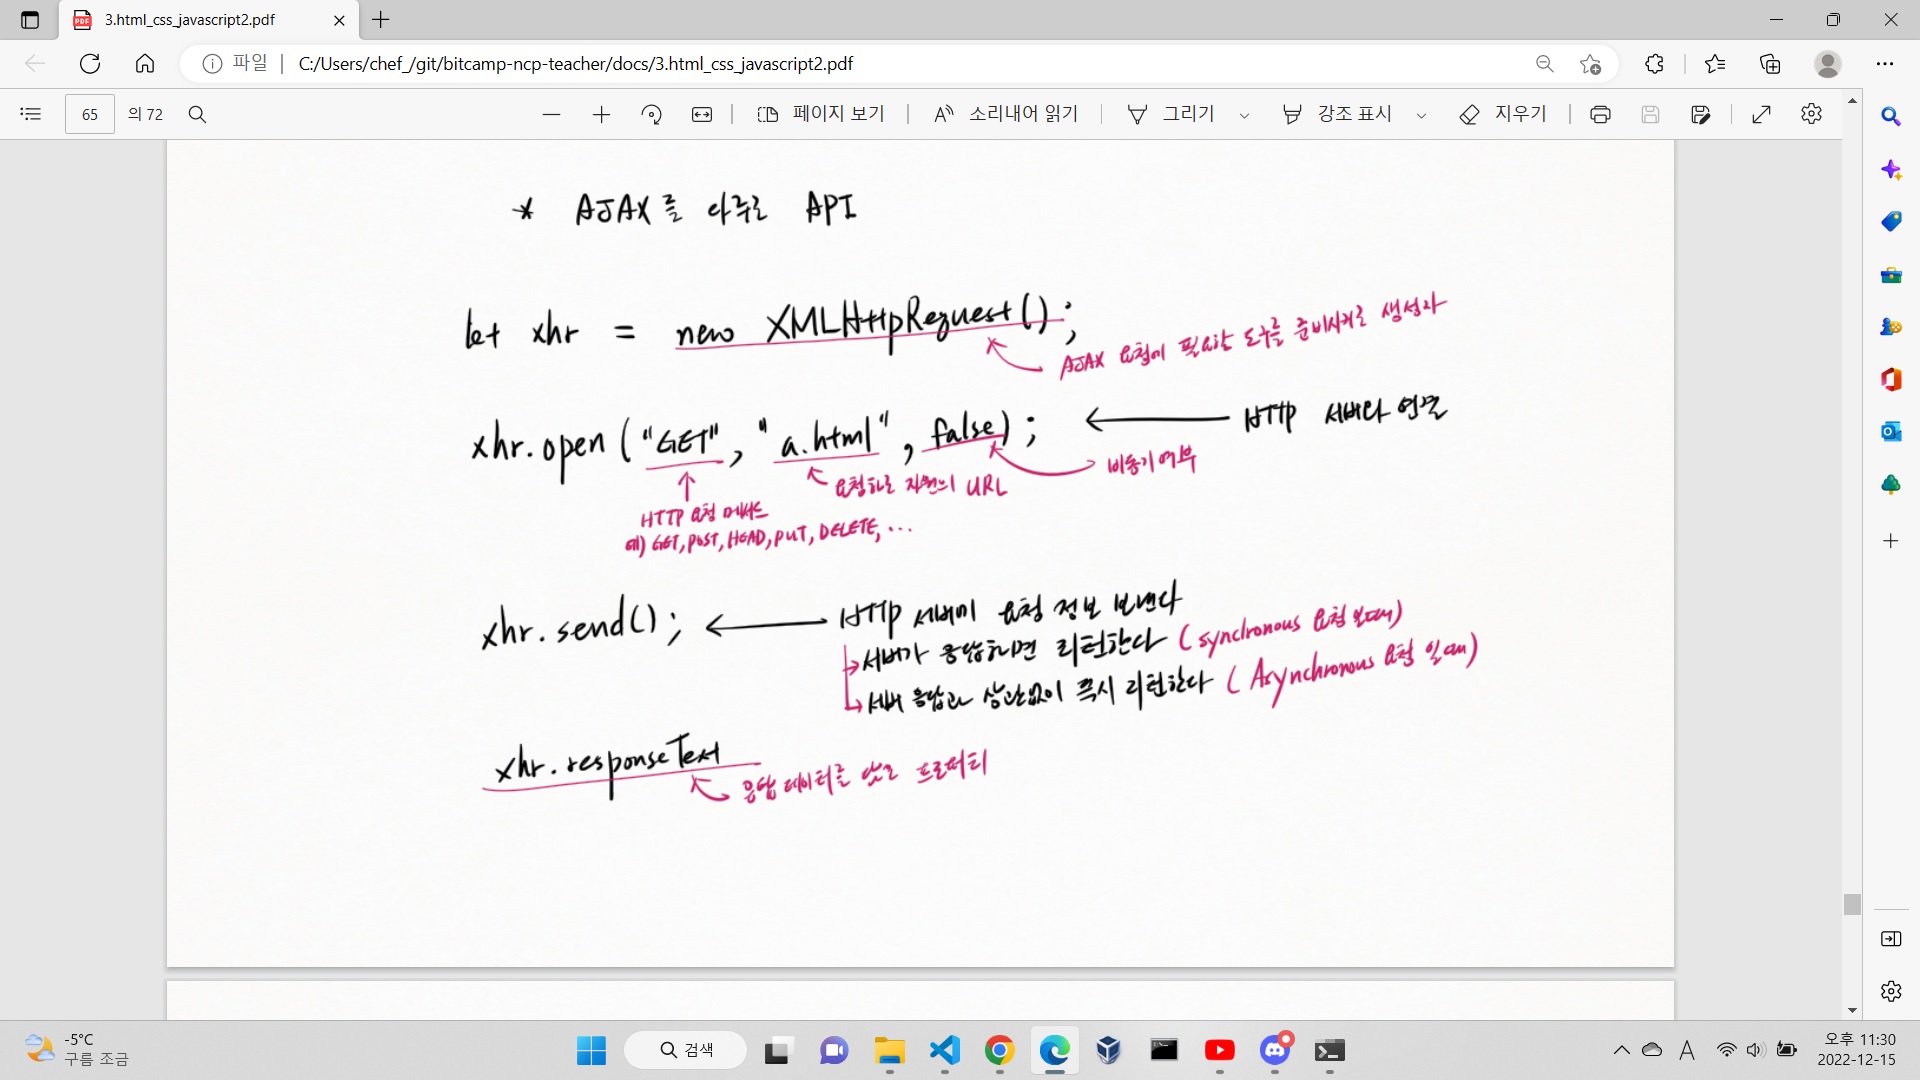 3.html_css_javascript2.pdf
파일 | C:/Users/chef_/git/bitcamp-ncp-teacher/docs/3.html_css_javascript2.pdf
65 의 72 페이지 보기 소리내어 읽기 그리기 강조 표시 지우기
* AJAX를 다루는 API
let xhr = new XMLHttpRequest();
AJAX 요청에 필요한 도구를 준비시키는 생성자
xhr.open("GET", "a.html", false);
HTTP 서버와 연결
비동기 여부
요청하는 자원의 URL
HTTP 요청 메서드
예) GET, POST, HEAD, PUT, DELETE, ...
xhr.send();
HTTP 서버에 요청 정보 보낸다
서버가 응답하면 리턴한다 (synchronous 요청일때)
서버 응답과 상관없이 즉시 리턴한다 (Asynchronous 요청일때)
xhr.responseText
응답 데이터를 담은 프로퍼티
-5°C
구름 조금
검색
A
오후 11:30
2022-12-15